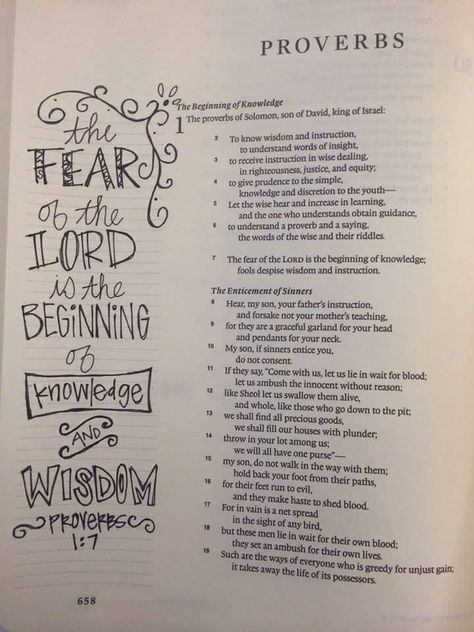 PROVERBS
the
FEAR
of the
LORD
is the
BEGINNING
of
Knowledge
AND
WISDOM
PROVERBS
1:7
The Beginning of Knowledge
1 The proverbs of Solomon, son of David, king of Israel:
2 To know wisdom and instruction,
to understand words of insight,
3 to receive instruction in wise dealing,
in righteousness, justice, and equity;
4 to give prudence to the simple,
knowledge and discretion to the youth—
5 Let the wise hear and increase in learning,
and the one who understands obtain guidance,
6 to understand a proverb and a saying,
the words of the wise and their riddles.
7 The fear of the LORD is the beginning of knowledge;
fools despise wisdom and instruction.
The Enticement of Sinners
8 Hear, my son, your father's instruction,
and forsake not your mother's teaching,
9 for they are a graceful garland for your head
and pendants for your neck.
10 My son, if sinners entice you,
do not consent.
11 If they say, "Come with us, let us lie in wait for blood;
let us ambush the innocent without reason;
12 like Sheol let us swallow them alive,
and whole, like those who go down to the pit;
13 we shall find all precious goods,
we shall fill our houses with plunder;
14 throw in your lot among us;
we will all have one purse"—
15 my son, do not walk in the way with them;
hold back your foot from their paths,
16 for their feet run to evil,
and they make haste to shed blood.
17 For in vain is a net spread
in the sight of any bird,
18 but these men lie in wait for their own blood;
they set an ambush for their own lives.
19 Such are the ways of everyone who is greedy for unjust gain;
it takes away the life of its possessors.
658